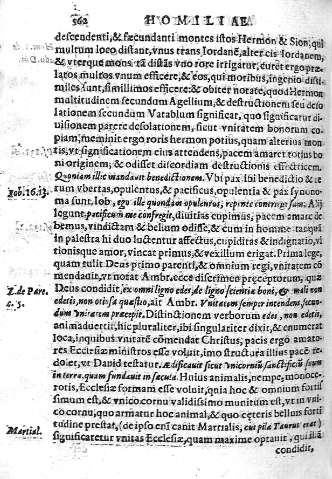 562 HOMILIAE
descendenti, & fæcundanti montes istos Hermon & Sion, qui
multum loco distant, vnus trans Iordanē, alter cis Iordanem,
& vterque mons tā distās vno rore irrigatur, curēt ergo præ-
latos multos vnum efficere, & eos, qui moribus, ingenio dissi-
miles sunt, simillimos efficere: & obiter notate, quod Hermon
multitudinem secundum Agellium, & destructionem seu deso-
lationem secundum Vatablum significat, quo significatur di-
uisionem parere desolationem, sicut vnitatem bonorum co-
piam, meminit ergo roris hermon potius, quam alterius mon-
tis, vt significationem eius attendens, pacem amaret totius bo-
ni originem, & odisset discordiam destructionis
Quoniam illic mandauit benedictionem. Vbi pax ibi benedictio & re-
rum vbertas, opulentus, & pacificus, opulentia & pax synono-
Iob. 16. 13. ma sunt, Iob, ego ille quondam opulentus, repente contritus sum. Alij
legunt pacificum me confregit, diuitias cupimus, pacem amare de-
bemus, vindictam & belium odisse, & cum in homine tanquā
in palestra hi duo luctentur affectus, cupiditas & indignatio, vl-
tionisque amor, vincat primus, & vexillum erigat. Prima lege,
quam tulit Deus primo parenti, & omnium regi, vnitatem cō-
mendauit, vt notat Ambr. ecce discrimen præceptorum, quæ
L. de Para. Deus condidit, ex omni ligno edes, de ligno scientia boni, & mali non
c. 5. edetis, non otiosa quæstio, ait Ambr. Vnitatem semper intendens, secun-
dum vnitatem præcepit. Distinctionem verborum edes, non edetis,
animaduertit, hic pluraliter, ibi singulariter dixit, & enumerat
loca, inquibus vnitatē cōmendat Christus, pacis ergo amato-
res Ecclesiæ ministros esse voluit, imo structura illius pacē re-
dolet, vt Dauid testatur. ædificauit sicut vnicornium sanctificium suum
in terra quam fundauit in sæcula. Huius animalis, nempe, monoce-
rotis, Ecclesiæ formam esse voluit, quia hoc & omnium fortis-
simum est, & vnico cornu validissimo munitum est, vt in vni-
co cornu, quo armatur hoc animal, & quo cęteris belluis forti-
Martial. tudine prestat, (de ipso enī canit Martialis, cui pila Taurus erat)
significaretur vnitas Ecclesiæ, quam maxime optauit,
condidit,